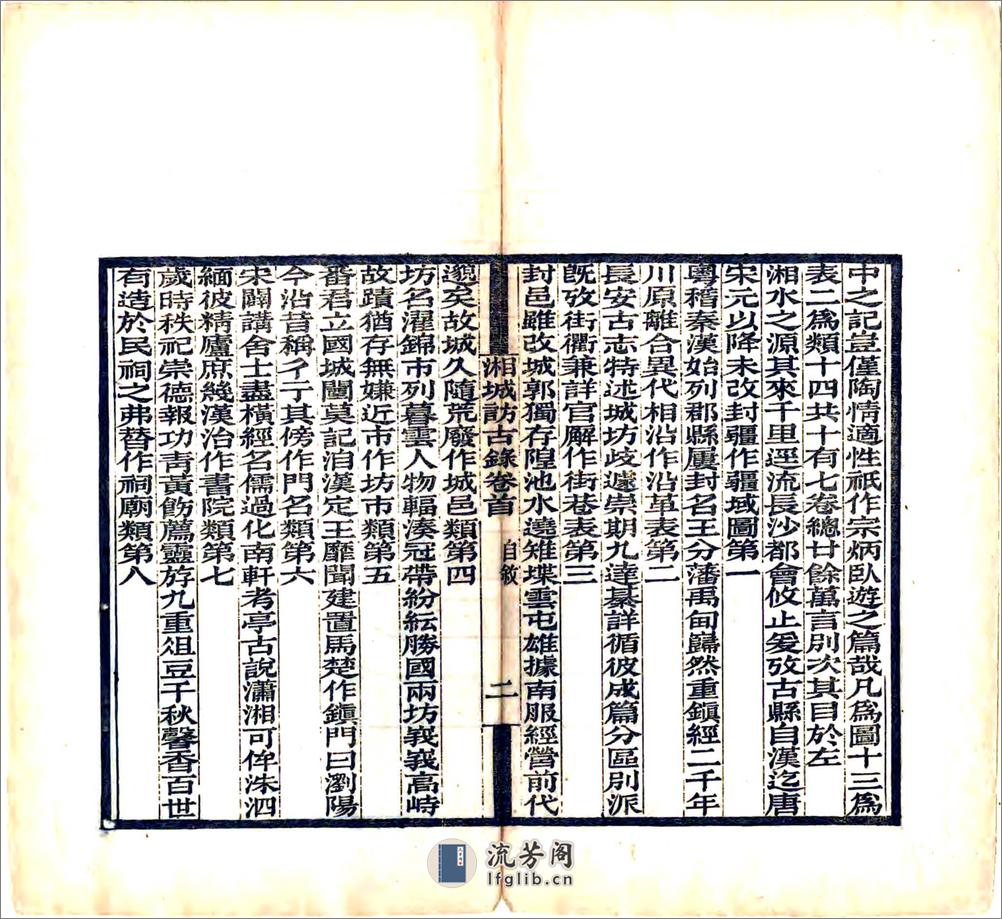 中之記豈僅陶情適性祇作宗炳臥遊之篇哉凡爲圖十三爲
表二爲類十四共十有七卷總廿餘萬言別次其目於左
湘水之源其來千里逕流長沙都會攸止爰攷古縣自漢迄唐
宋元以降未改封疆作疆域圖第一
粵稽秦漢始列郡縣屢封名王分藩禹甸巋然重鎮經二千年
川原離合異代相沿作沿革表第二
長安古志特述城坊歧遽崇期九達綦詳循彼成篇分區別派
旣攷街衢兼詳官廨作街巷表第三
封邑雖改城郭獨存隍池水遶雉堞雲屯雄據南服經營前代
邈矣故城久隨荒廢作城邑類第四
坊名濯錦市列暮雲人物輻湊冠帶紛紜勝國兩坊峩峩高峙
故蹟猶存無嫌近市作坊市類第五
番君立國城闉莫記洎漢定王靡聞建置馬楚作鎭門曰瀏陽
今沿昔稱彳亍其傍作門名類第六
宋闢講舍士盡橫經名儒過化南軒考亭古說瀟湘可俾洙泗
緬彼精廬庶幾漢治作書院類第七
歲時秩祀崇德報功靑黃飭薦靈斿九重俎豆千秋馨香百世
有造於民祠之弗替作祠廟類第八
湘城訪古錄卷首 自敘 二
流芳阁
lfglib.cn